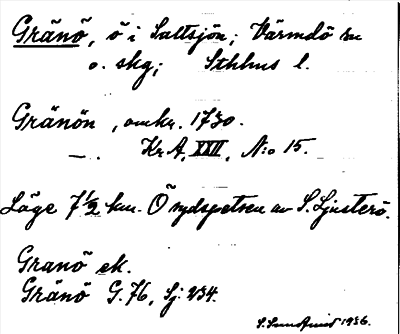 Gränö, ö i Saltsjön; Värmdö sn
o. skg; Sthlms l.
Gränön, omkr. 1730.
—. Kr A, XXII, N:o 15.
Läge 7½ km. Ö sydspetsen av S. Ljusterö.
Granö ek.
Gränö G. 76, Sj: 234.
1936.